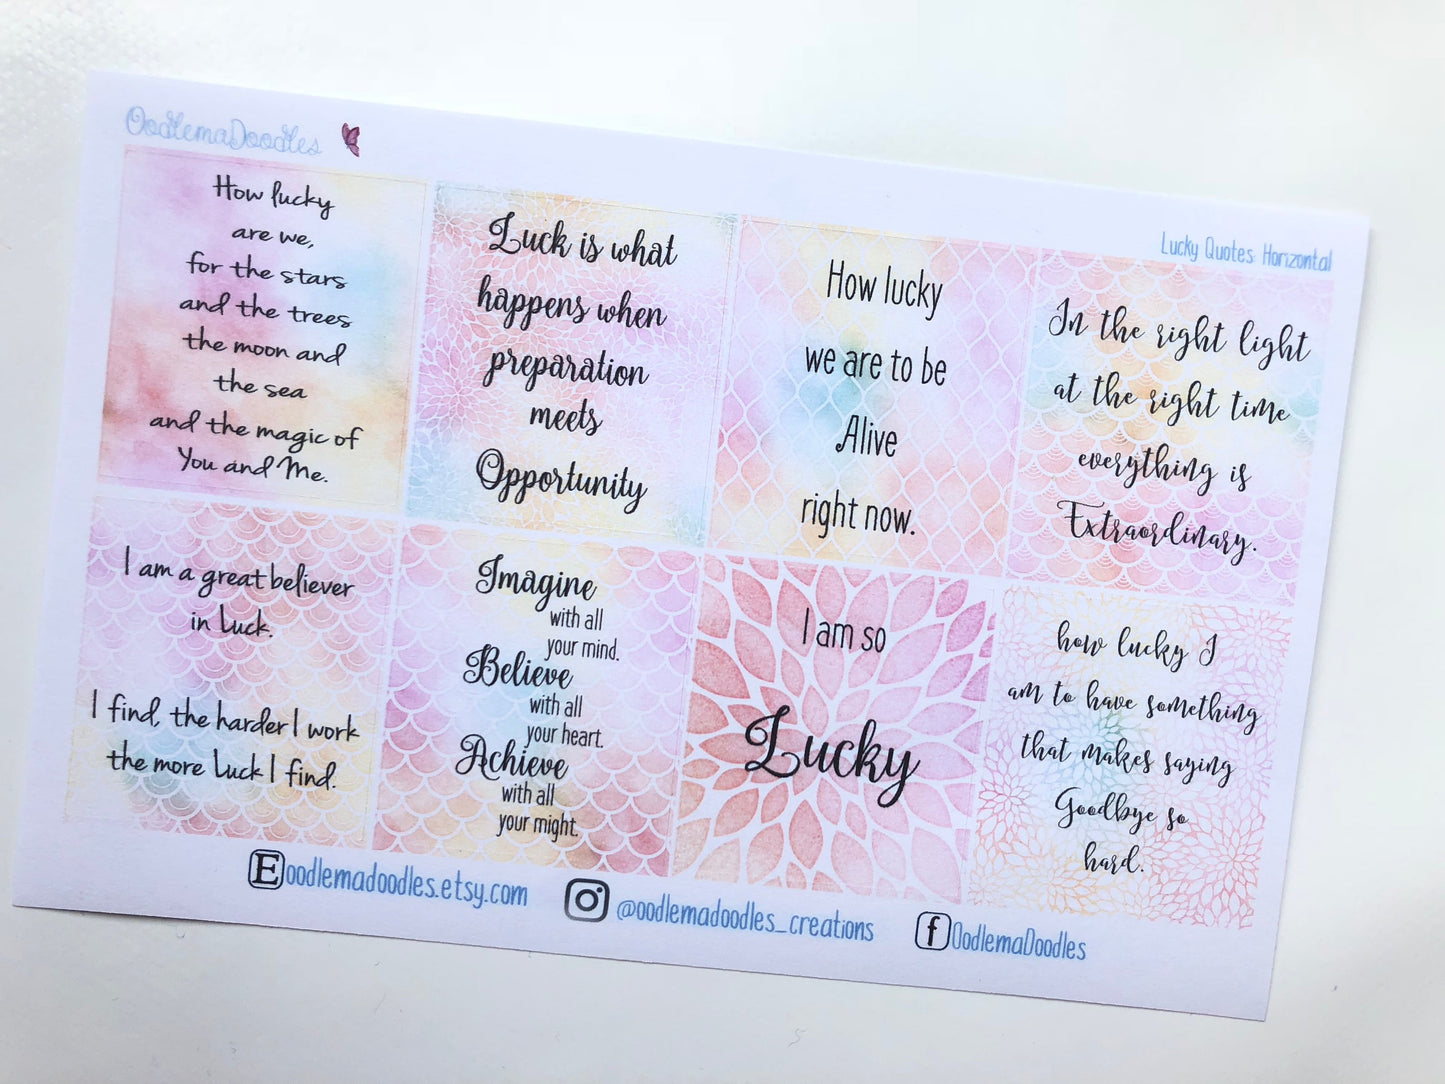 OodlemaDoodles
Lucky Quotes Horizontal
How lucky
are we,
for the stars
and the trees
the moon and
the sea
and the magic of
You and Me.
Luck is what
happens when
preparation
meets
Opportunity
How lucky
we are to be
Alive
right now.
In the right light
at the right time
everything is
Extraordinary.
I am a great believer
in Luck.
I find, the harder I work
the more Luck I find.
Imagine
with all
your mind.
Believe
with all
your heart.
Achieve
with all
your might.
I am so
Lucky
how lucky I
am to have something
that makes saying
Goodbye so
hard.
E oodlemadoodles.etsy.com
@oodlemadoodles_creations
f OodlemaDoodles